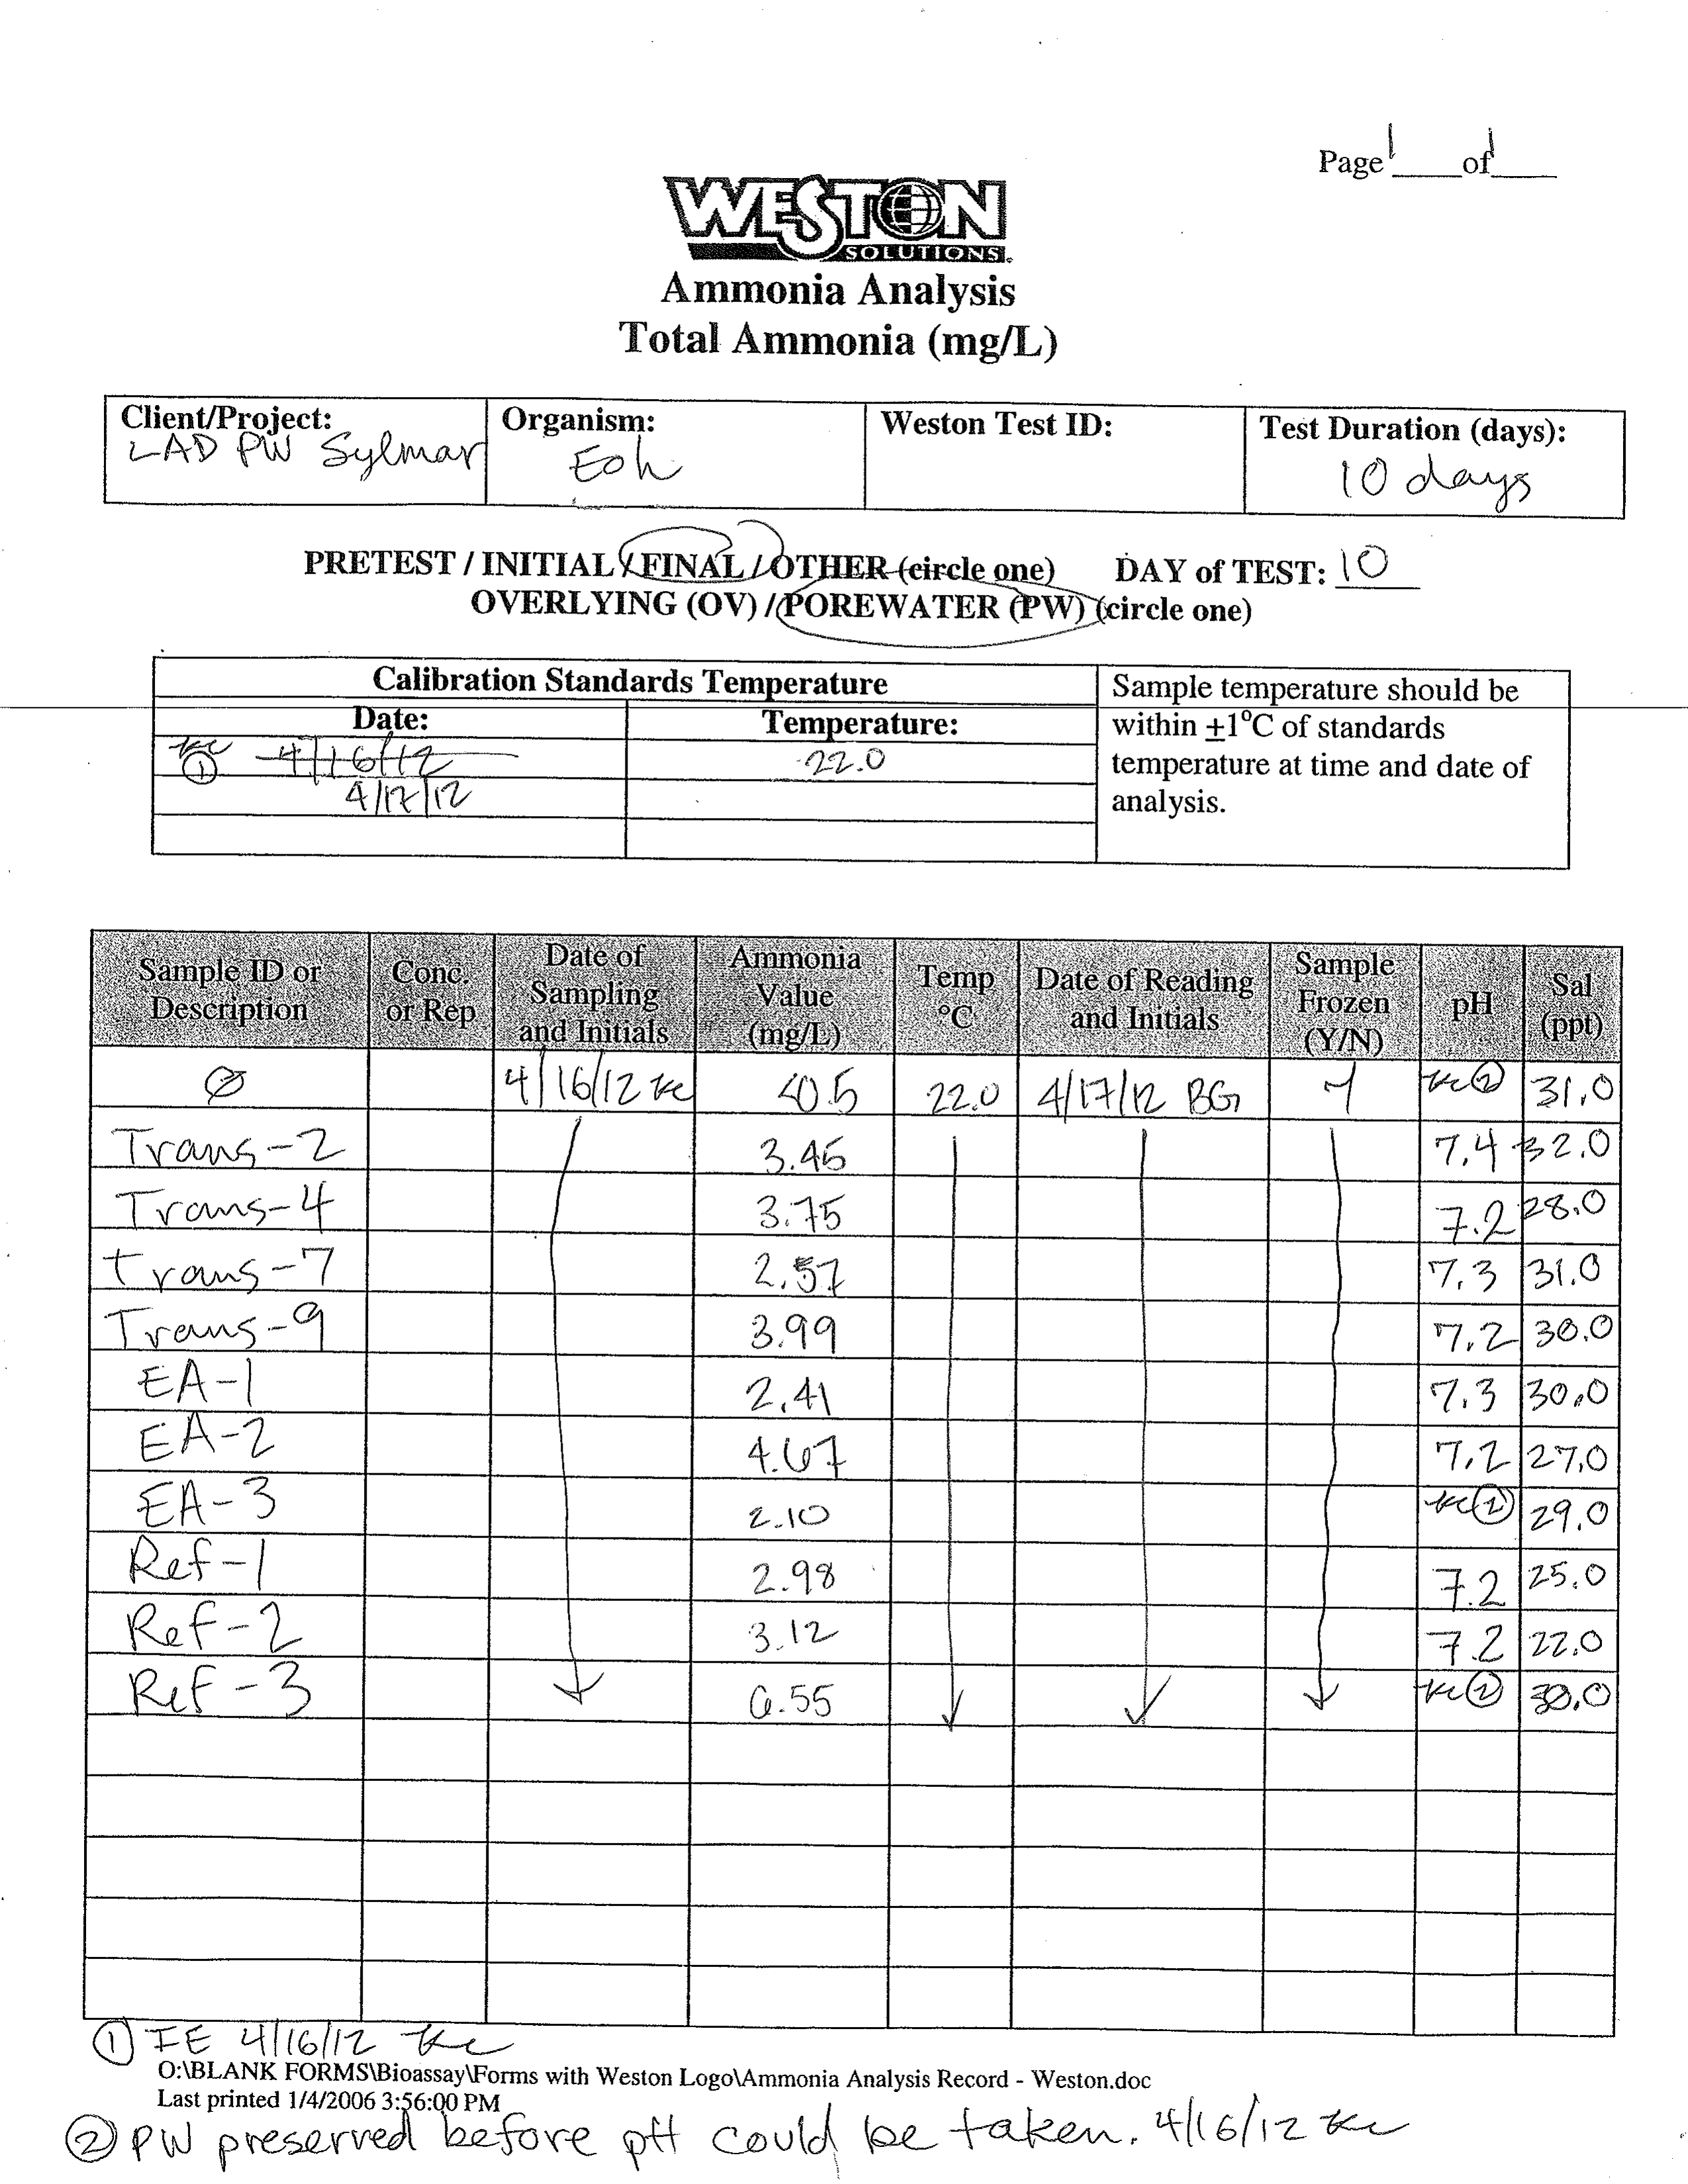 Page 1 of 1
WESTON
SOLUTIONS
Ammonia Analysis
Total Ammonia (mg/L)
Client/Project: LAD PW Sylmar
Organism: Eoh
Weston Test ID:
Test Duration (days): 10 days
PRETEST / INITIAL / FINAL / OTHER (circle one) DAY of TEST: 10
OVERLYING (OV) / POREWATER (PW) (circle one)
Calibration Standards Temperature
Date: Temperature:
KC ① 4/16/12 22.0
4/17/12
Sample temperature should be
within ±1°C of standards
temperature at time and date of
analysis.
Sample ID or Description Conc. or Rep Date of Sampling and Initials Ammonia Value (mg/L) Temp °C Date of Reading and Initials Sample Frozen (Y/N) pH Sal (ppt)
Ø 4/16/12 KC <0.5 22.0 4/17/12 BG Y KC② 31.0
Trans-2 3.45 7.4 32.0
Trans-4 3.75 7.2 28.0
Trans-7 2.57 7.3 31.0
Trans-9 3.99 7.2 30.0
EA-1 2.41 7.3 30.0
EA-2 4.67 7.2 27.0
EA-3 2.10 KC② 29.0
Ref-1 2.98 7.2 25.0
Ref-2 3.12 7.2 22.0
Ref-3 KC② 30.0
① IE 4/16/12 KC
O:\BLANK FORMS\Bioassay\Forms with Weston Logo\Ammonia Analysis Record - Weston.doc
Last printed 1/4/2006 3:56:00 PM
② PW preserved before pH could be taken. 4/16/12 KC